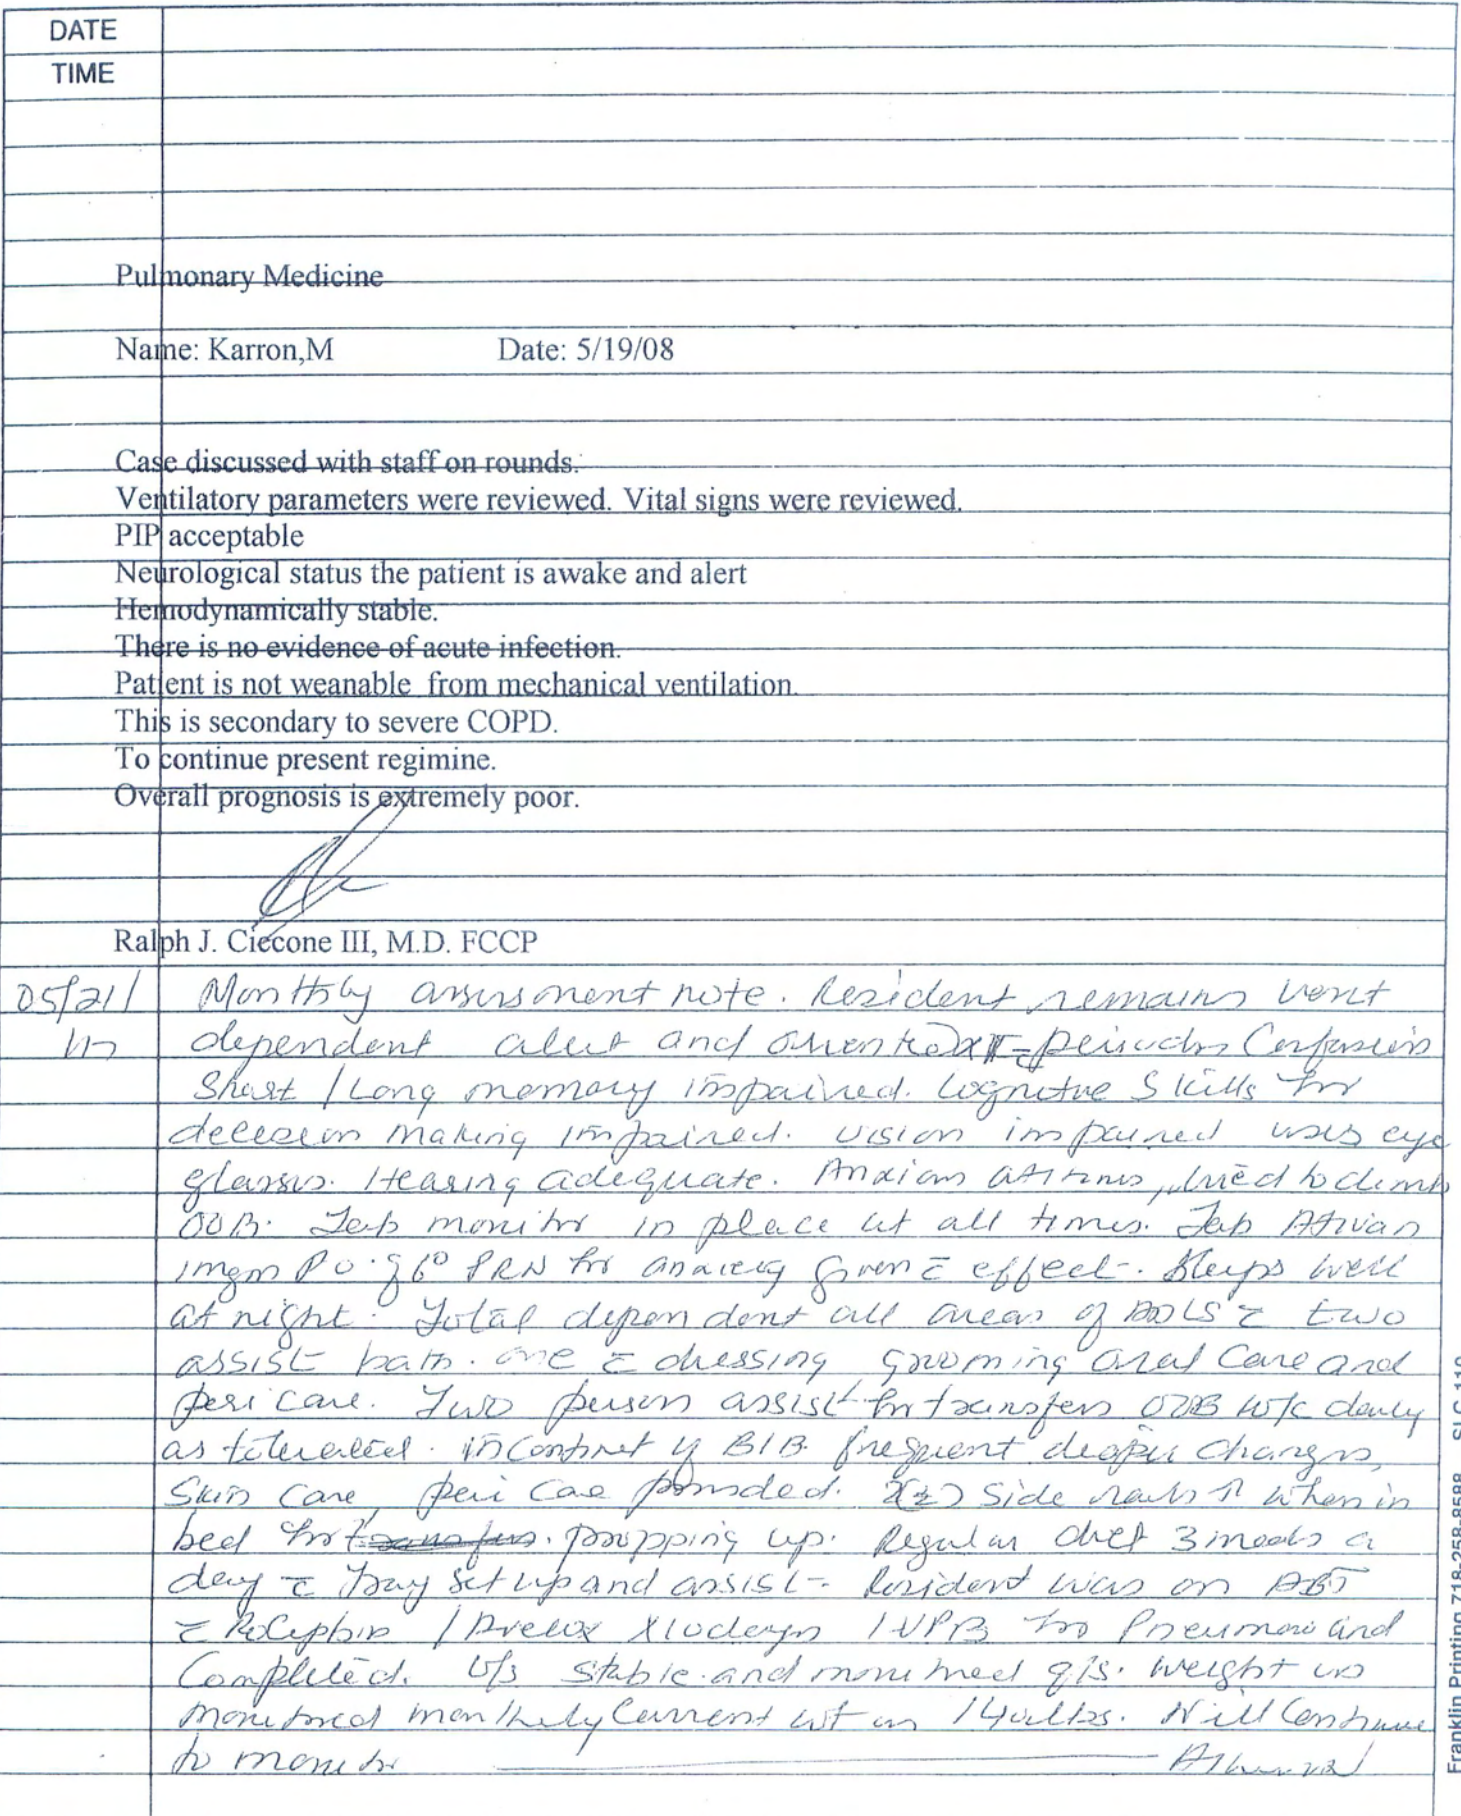 DATE
TIME
Pulmonary Medicine
Name: Karron,M Date: 5/19/08
Case discussed with staff on rounds.
Ventilatory parameters were reviewed. Vital signs were reviewed.
PIP acceptable
Neurological status the patient is awake and alert
Hemodynamically stable.
There is no evidence of acute infection.
Patient is not weanable from mechanical ventilation.
This is secondary to severe COPD.
To continue present regimine.
Overall prognosis is extremely poor.
Ralph J. Ciccone III, M.D. FCCP
05/21/ Monthly assessment note. Resident remains vent
dependent alert and oriented periods Confusion
Short / Long memory impaired. Cognitive Skills for
decision making impaired. Vision impaired uses eye
glasses. Hearing adequate. Anxious at times, tried to climb
OOB. Tab monitor in place at all times. Tab Ativan
1mgm PO q6° PRN for anxiety given c̄ effect. Sleeps well
at night. Total dependent all areas of ADLS c̄ two
assist bath. one c̄ dressing, grooming oral Care and
peri care. Two person assist for transfers OOB w/c daily
as tolerated. incontinent of B/B. frequent diaper changes,
Skin Care, peri Care provided. (2) Side rails ↑ when in
bed for propping up. Regular diet 3 meals a
day c̄ tray set up and assist. Resident was on ABT
c̄ Rocephin / Avelox X10days IVPB for Pneumonia and
Completed. V/S Stable and monitored q/s. Weight is
monitored monthly Current wt lbs. Will Continue
to monitor
Franklin Printing 718-258-8588 SLC-110